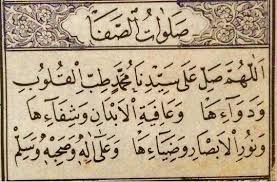 صَلَوَاتُ الصَّفَا
اَللّٰهُمَّ صَلِّ عَلٰى سَيِّدِنَا مُحَمَّدٍ طِبِّ الْقُلُوبِ
وَدَوَاءِهَا وَعَافِيَةِ الْأَبْدَانِ وَشِفَاءِهَا
وَنُورِ الْأَبْصَارِ وَضِيَاءِهَا وَعَلٰى اٰلِهِ وَصَحْبِهِ وَسَلِّمْ